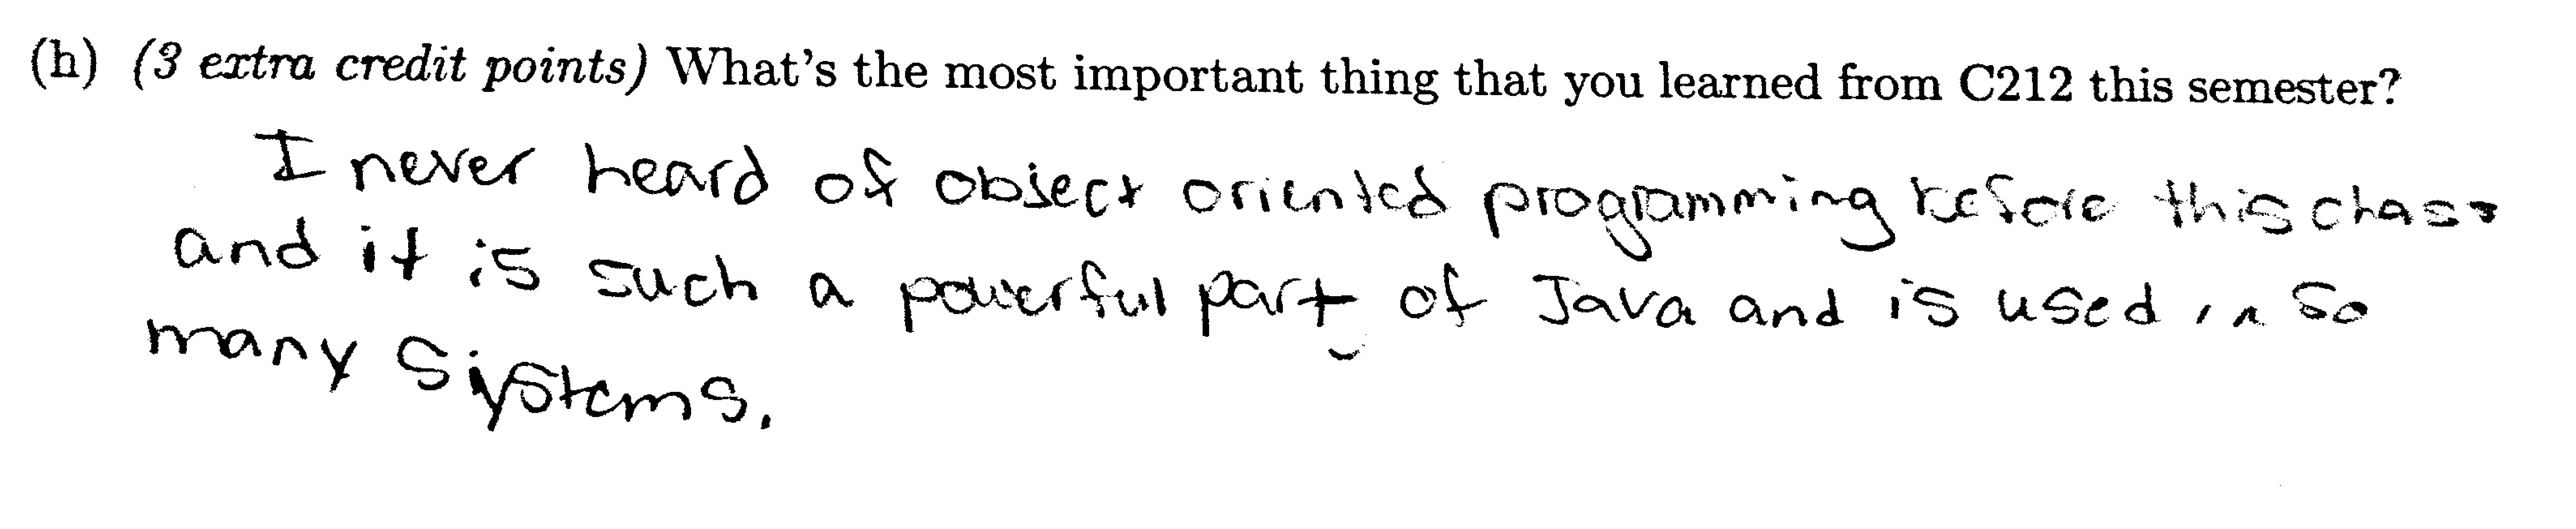 (h) (3 extra credit points) What's the most important thing that you learned from C212 this semester?
I never heard of object oriented programming before this class
and it is such a powerful part of Java and is used in so
many systems.